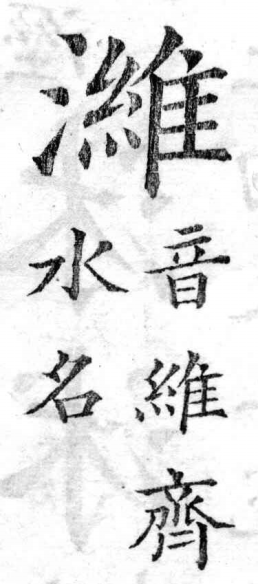 濰
音維齊
水名